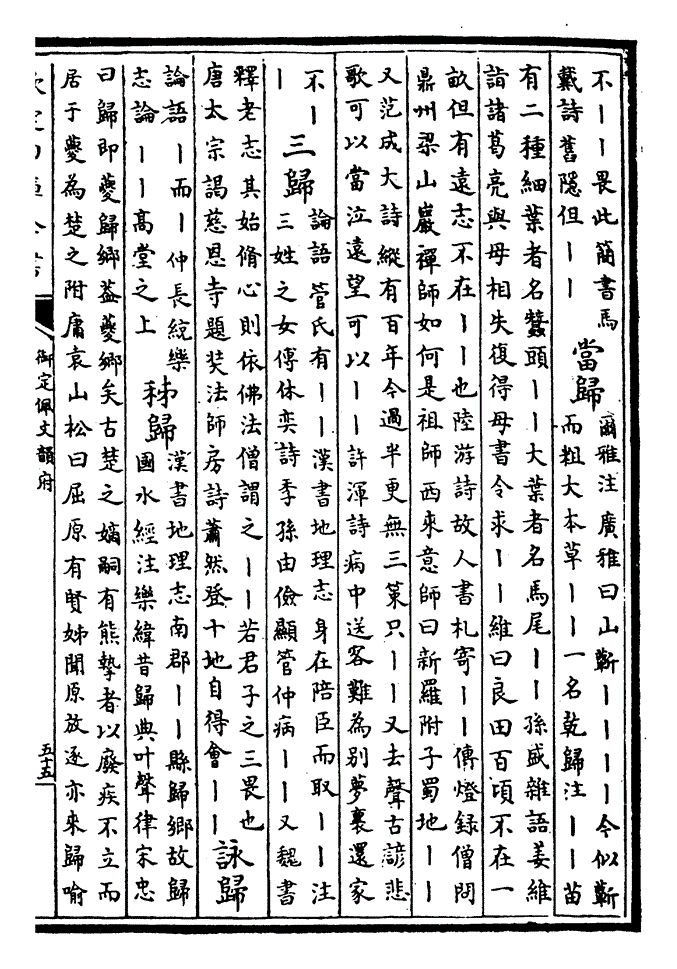 不丨丨畏此簡書馬
戴詩舊隱但丨丨
當歸
爾雅注廣雅曰山蘄丨丨丨丨今似蘄
而粗大本草丨丨一名乾歸注丨丨苗
有二種細葉者名蠶頭丨丨大葉者名馬尾丨丨孫盛雜語姜維
詣諸葛亮與母相失復得母書令求丨丨維曰良田百頃不在一
畝但有遠志不在丨丨也陸游詩故人書札寄丨丨傳燈錄僧問
鼎州梁山巖禪師如何是祖師西來意師曰新羅附子蜀地丨丨
又范成大詩縱有百年今過半更無三策只丨丨又去聲古諺悲
歌可以當泣遠望可以丨丨許渾詩病中送客難為別夢裏還家
不丨
丨
三歸
論語管氏有丨丨漢書地理志身在陪臣而取丨丨注
三姓之女傅休奕詩季孫由儉顯管仲病丨丨又魏書
釋老志其始脩心則依佛法僧謂之丨丨若君子之三畏也
唐太宗謁慈恩寺題奘法師房詩蕭然登十地自得會丨丨
詠歸
論語丨而丨仲長統樂
志論丨丨高堂之上
秭歸
漢書地理志南郡丨丨縣歸鄉故歸
國水經注樂緯昔歸典叶聲律宋忠
曰歸即夔歸鄉葢夔鄉矣古楚之嫡嗣有熊摯者以廢疾不立而
居于夔為楚之附庸袁山松曰屈原有賢姊聞原放逐亦來歸喻
欽定四庫全書
御定佩文韻府
五十五